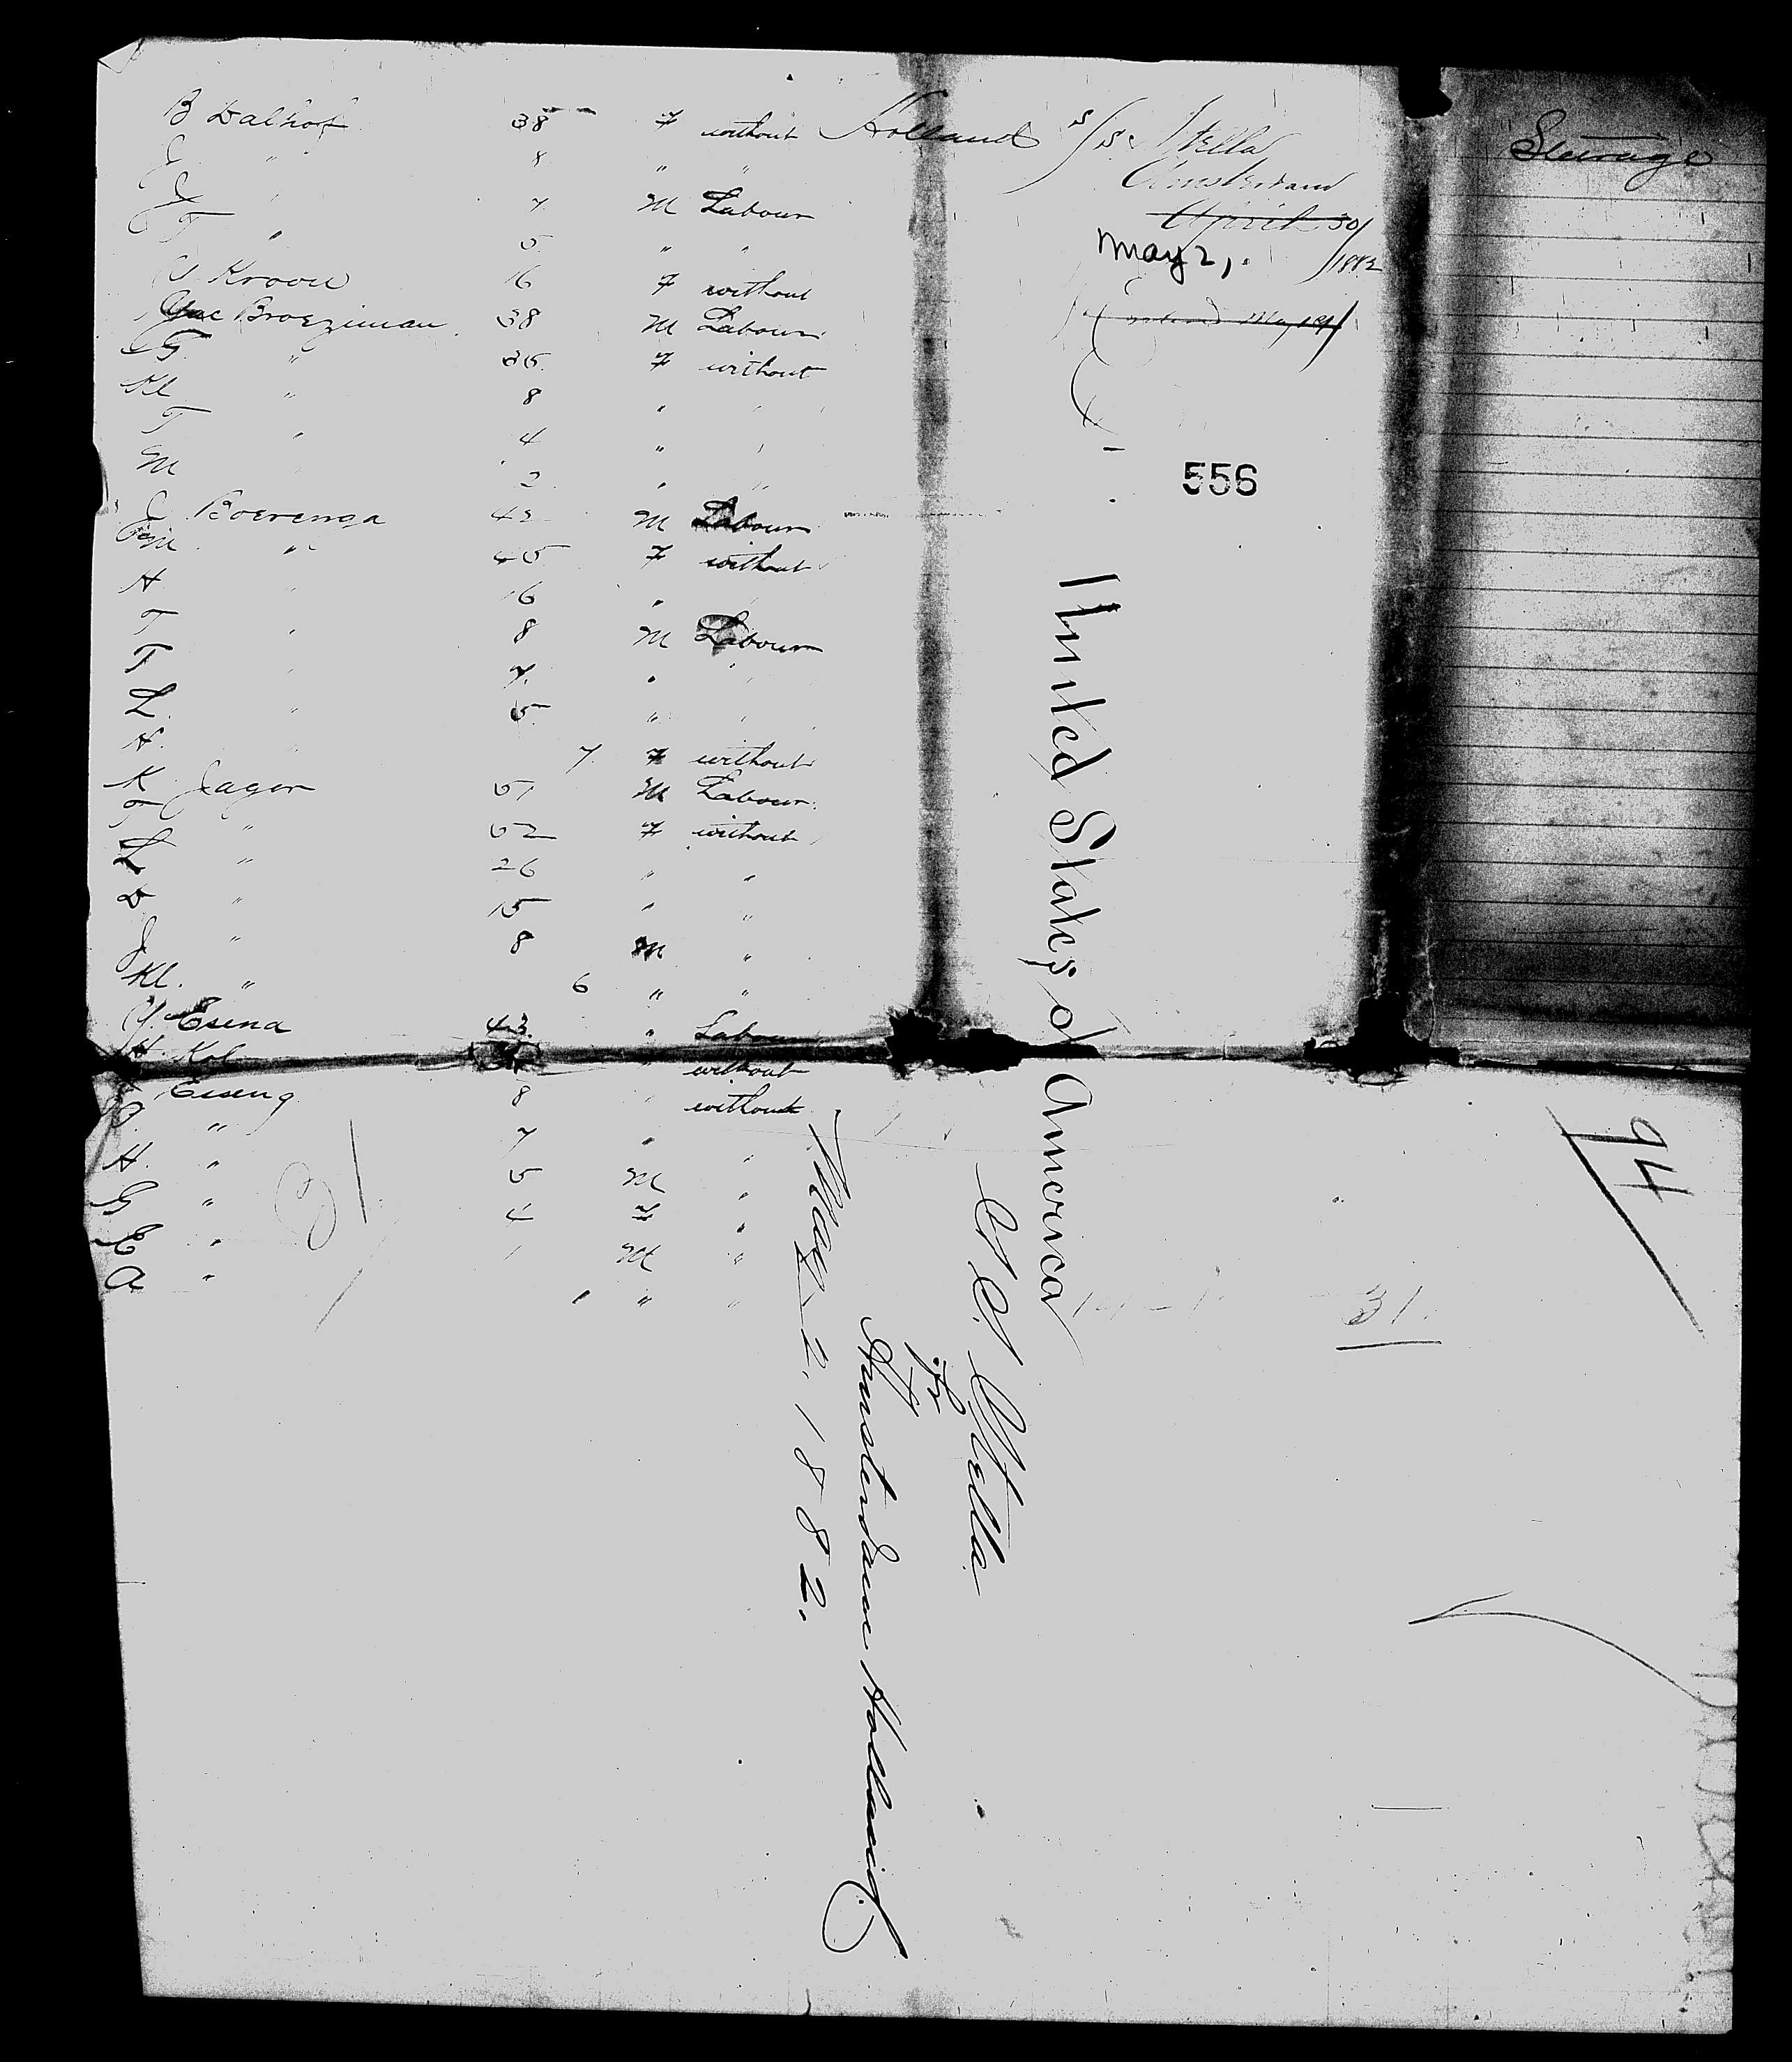 B Dalhof 38 F without Holland
J " 8 " "
J " 7 M Labour
T " 5 " "
Kroon 16 F without
Broeziman 38 M Labour
G " 36 F without
Kl " 8 " "
T " 4 " "
M " 2 " "
J Boerenga 42 M Labour
M " 45 F without
H " 16 "
T " 8 M Labour
T " 7 " "
L " 5 " "
H. " 7 F without
K Jager 51 M Labour
T " 52 F without
L " 26 " "
D " 15 " "
J " 8 M "
Kl. " 6 " "
Y. Esena 43 " Labour
Kol " without
Eiseng 8 " without
" 7 " "
H. " 5 M "
G " 4 F "
E " 1 M "
A " 1 " "
S/S Stella
Amsterdam
April 30/
May 2, 1882
556
Steerage
United States of America
S.S. Stella
fr
Amsterdam Holland
May 2. 1882.
94
31.